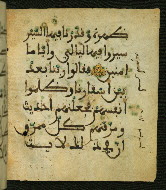 ظهرة وقدرنا فيها السير
سيروا فيها ليالي واياما
امنين فقالوا ربنا بعد
بين اسفارنا وظلموا
انفسهم فجعلنهم احاديث
ومزقنهم كل ممزق
ان في ذلك لايت